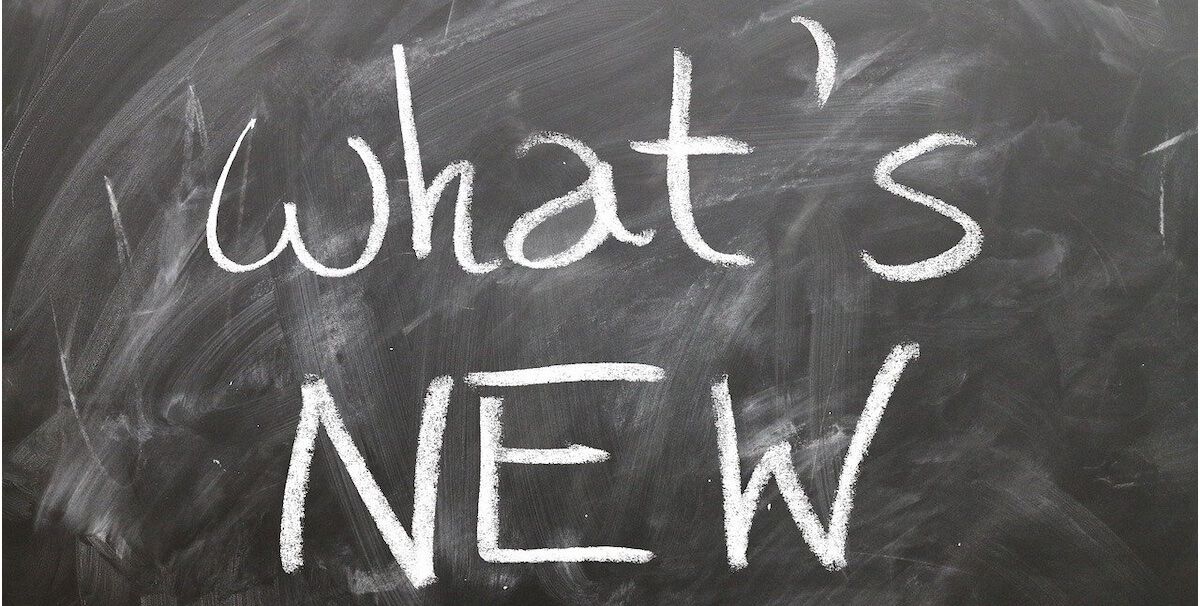 what's
NEW